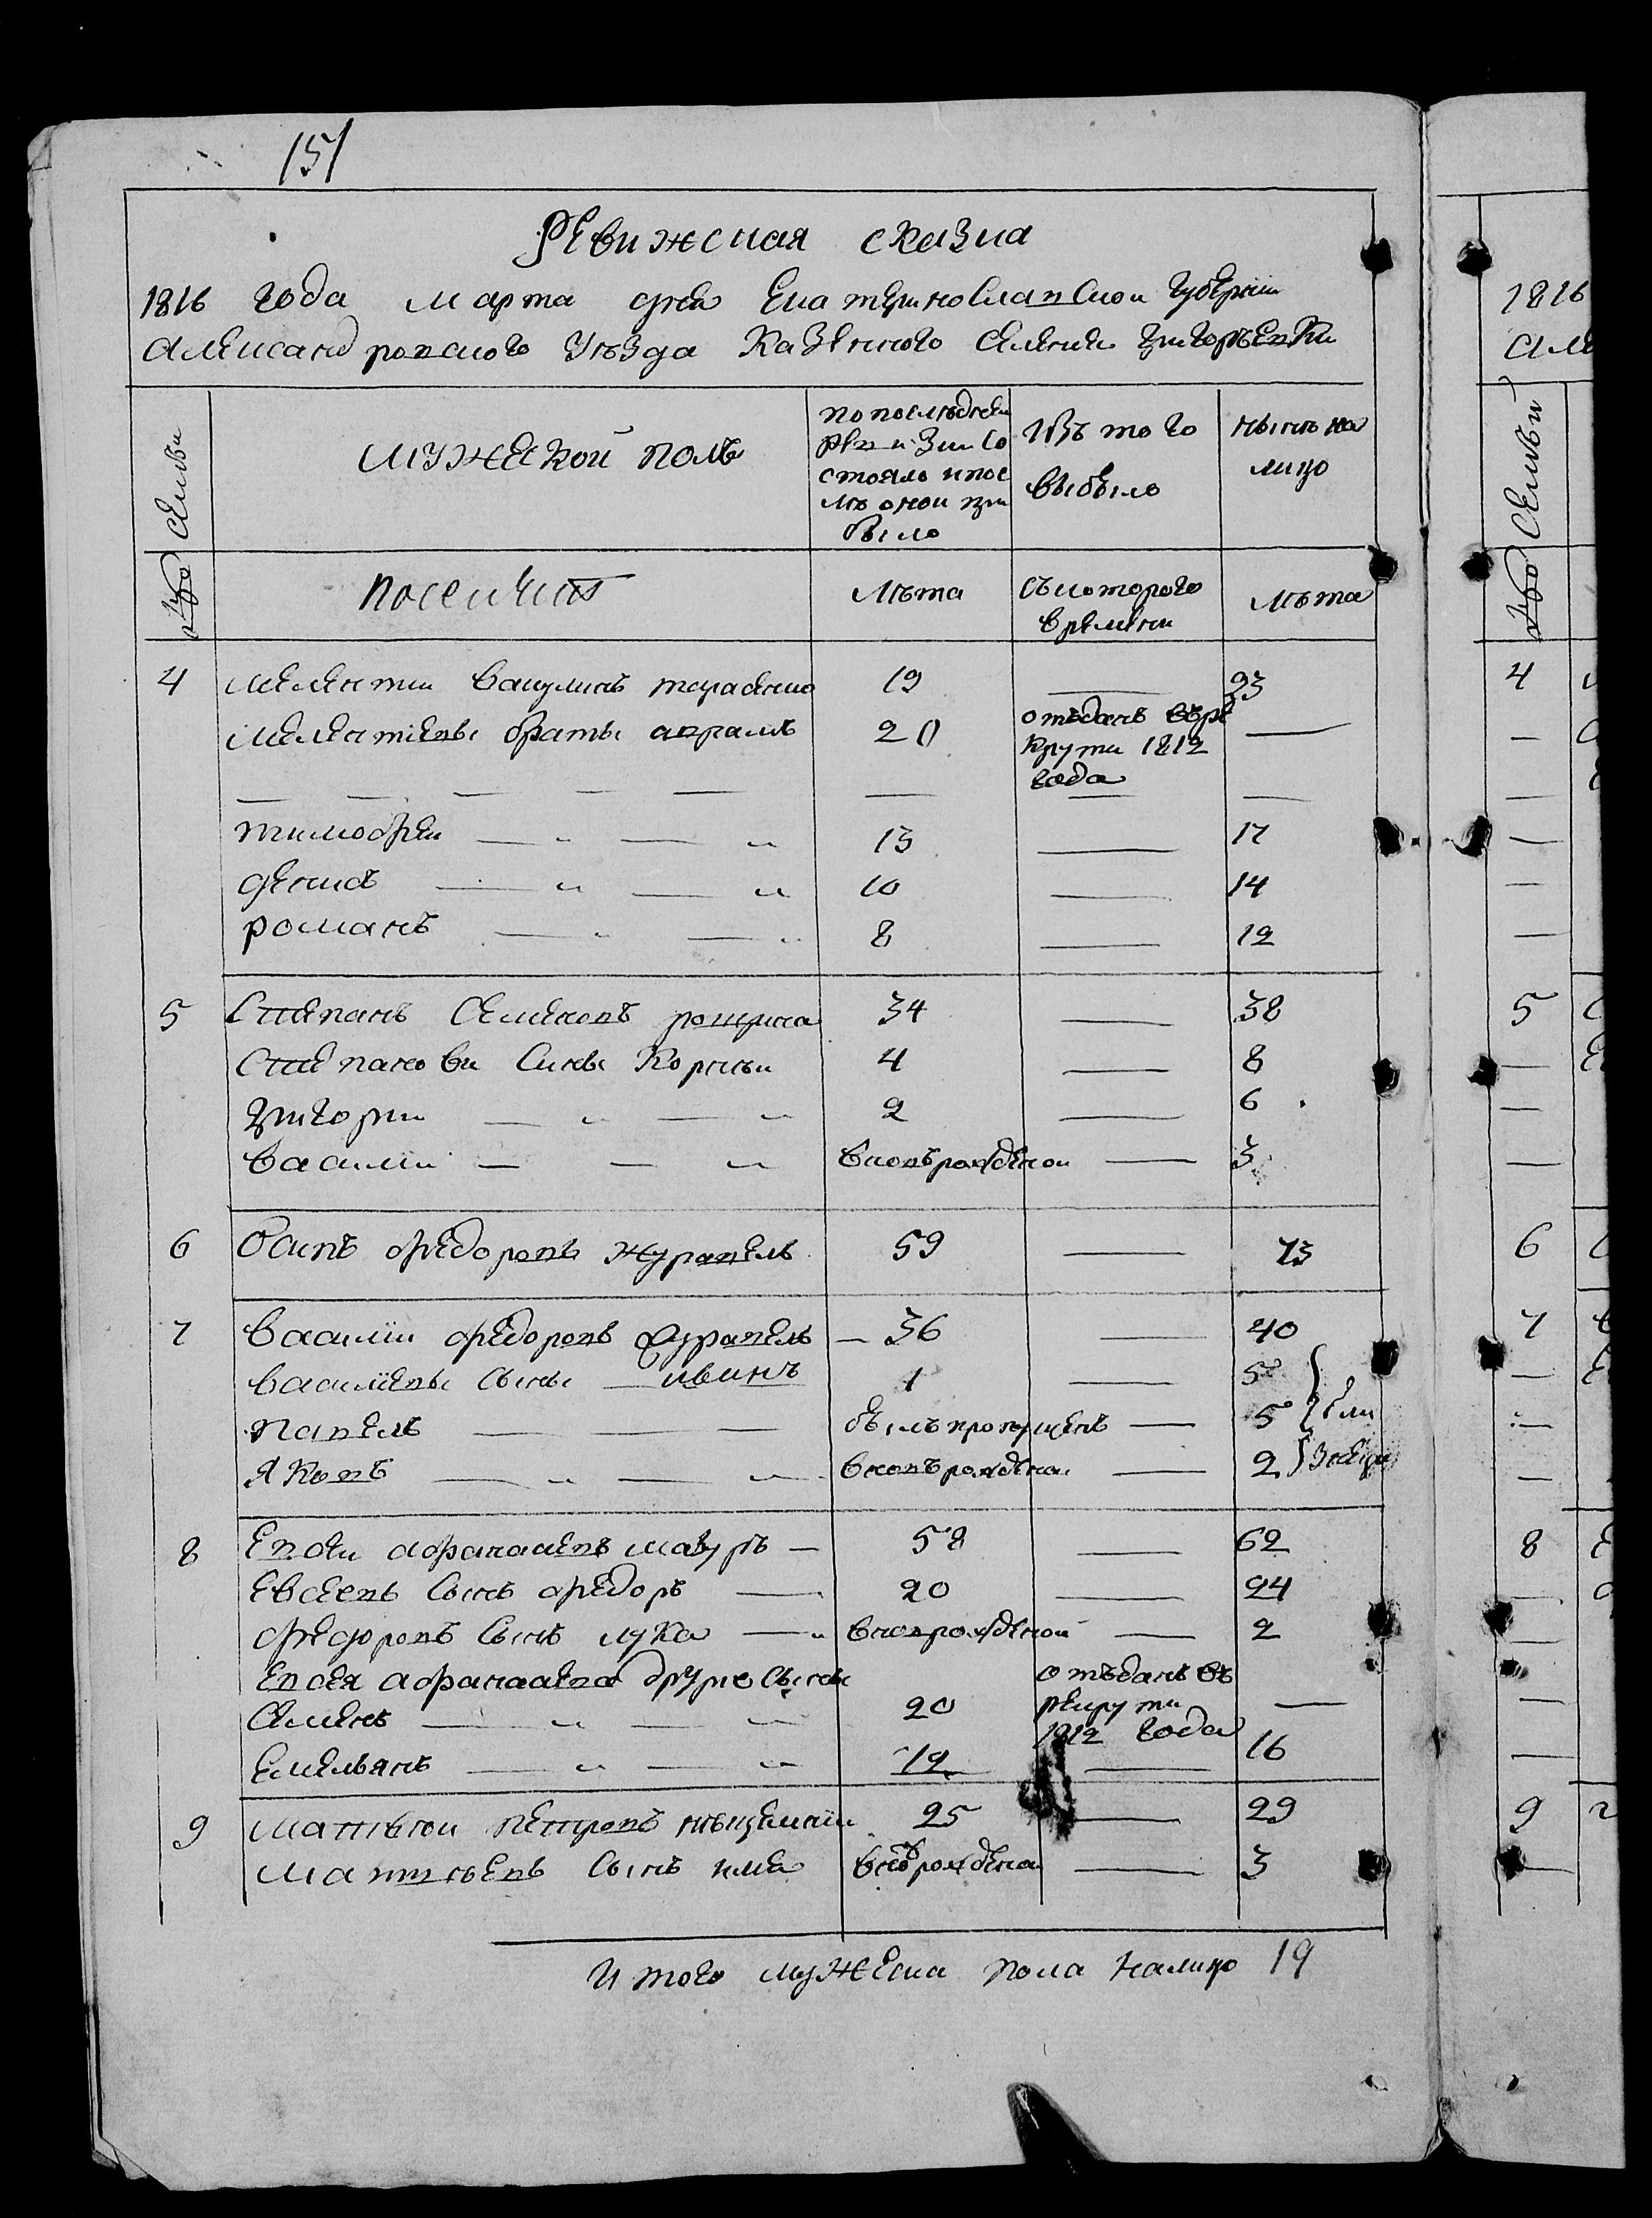 151
Ревижская сказка
1816 года марта дня Екатеринославской Губернии
Александровского Уезда Казенного Селения Григорьевки
Семьи
мужеской полъ
попоследней
ревизии со
стояло ипос
ле оной при
было
Изъ того
выбыло
ныне на
лицо
лета
съкоторого
времени
лета
4 мелентии вакулинъ тарасенко 19 — 23
мелентиевы браты аврамъ 20 отъданъ въре —
круты 1812
года
— — — — — — — —
тимофеи — „ — „ 13 — 17
денисъ — „ — „ 10 — 14
романъ — „ — „ 8 — 12
5 Степанъ Семеновъ 34 — 38
Степанови Сины Корнеи 4 — 8
григории — „ — „ 2 — 6
василии — — „ вновърожденои — 3
6 Осипъ федоровъ журавель 59 — 73
7 василии федоровъ журавель — 36 — 40
василиевы сыны — иванъ 1 — 5
павель — — — былъпропущенъ — 5
Яковъ — „ — „ вновърожденои — 2
8 Евсеи афанасиевъ мазуръ — 58 — 62
Евсеевъ сынъ федоръ — 20 — 24
федоровъ сынъ лука — „ вноврожденой — 2
Евсея афанасиева другие сыны отъданъ въ
Семенъ — „ — „ 20 рекруты —
1812 года
Емельянъ — „ — „ 12 — 16
9 Матвеои Петровъ 25 — 29
Матвеевъ сынъ илья вновърожденои — 3
Итого мужеска пола налицо 19
1816
Але
Семьи
4
—
—
—
—
—
5
—
—
—
6
7
—
—
—
8
—
—
—
—
9
—